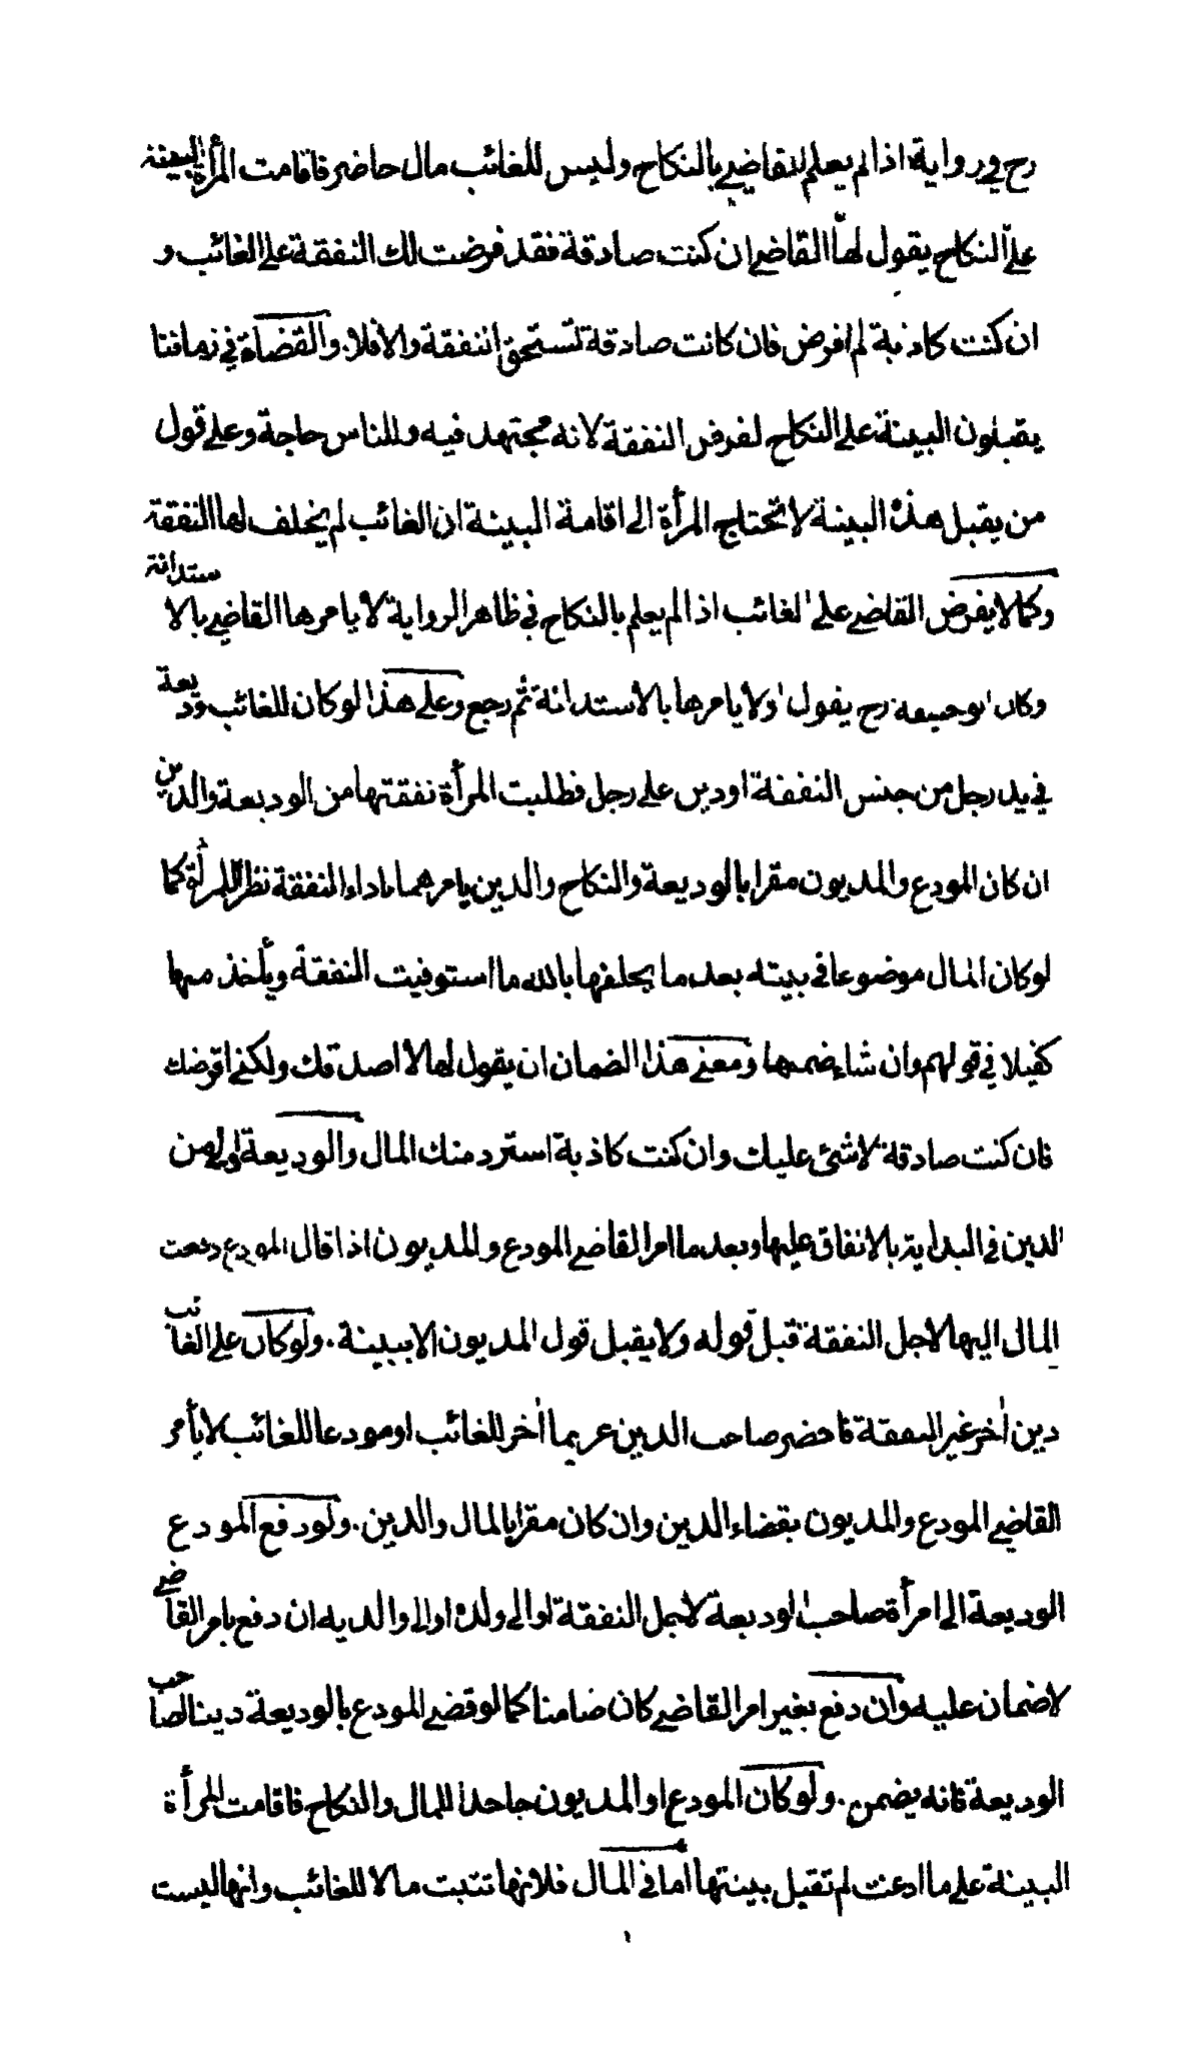 رح في رواية اذا لم يعلم القاضي بالنكاح وليس للغائب مال حاضر فاقامت المرأة البينة
على النكاح يقول لها القاضي ان كنت صادقة فقد فرضت لك النفقة على الغائب و
ان كنت كاذبة لم افرض فان كانت صادقة تستحق النفقة والا فلا. والقضاة في زماننا
يقبلون البينة على النكاح لفرض النفقة لانه مجتهد فيه وللناس حاجة وعلى قول
من يقبل هذه البينة لا تحتاج المرأة الى اقامة البينة ان الغائب لم يخلف لها النفقة
وكما لا يفرض القاضي على الغائب اذا لم يعلم بالنكاح في ظاهر الرواية لا يامرها القاضي بالاستدانة
وكان ابو حنيفة رح يقول اولا يامرها بالاستدانة ثم رجع وعلى هذا لو كان للغائب وديعة
في يد رجل من جنس النفقة او دين على رجل فطلبت المرأة نفقتها من الوديعة والدين
ان كان المودع والمديون مقرا بالوديعة والنكاح والدين يامرهما باداء النفقة نظرا للمرأة كما
لو كان المال موضوعا في بيته بعد ما يحلفها بالله ما استوفيت النفقة ويأخذ منها
كفيلا في قولهم وان شاء ضمنها ومعنى هذا الضمان ان يقول لها لا اصدقك ولكني اقرضك
فان كنت صادقة لا شئ عليك وان كنت كاذبة استرد منك المال والوديعة اولى من
الدين في البداية بالانفاق عليها وبعد ما امر القاضي المودع والمديون اذا قال المودع دفعت
المال اليها لاجل النفقة قبل قوله ولا يقبل قول المديون الا ببينة. ولو كان على الغائب
دين اخر غير النفقة فاحضر صاحب الدين غريما اخر للغائب او مودعا للغائب لا يأمر
القاضي المودع والمديون بقضاء الدين وان كان مقرا بالمال والدين. ولو دفع المودع
الوديعة الى امرأة صاحب الوديعة لاجل النفقة او الى ولده او الى والديه ان دفع بامر القاضي
لا ضمان عليه وان دفع بغير امر القاضي كان ضامنا كما لو قضى المودع بالوديعة دينا لصاحب
الوديعة فانه يضمن. ولو كان المودع او المديون جاحدا للمال والنكاح فاقامت المرأة
البينة على ما ادعت لم تقبل بينتها اما في المال فلانها تثبت مالا للغائب وانها ليست